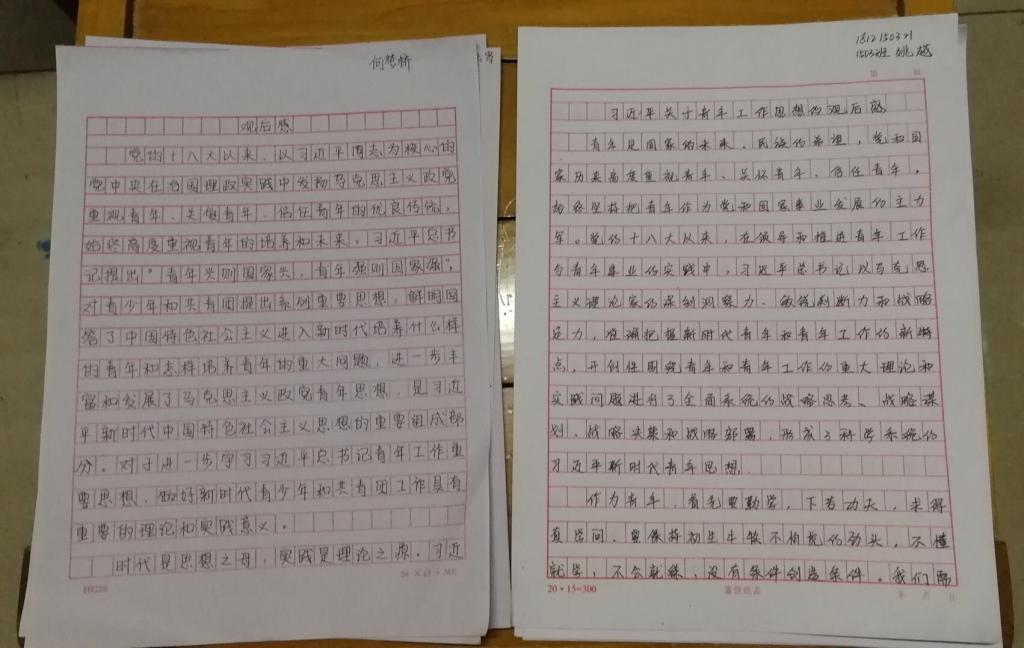 何梦娇
观后感
党的十八大以来，以习近平同志为核心的
党中央在治国理政实践中发扬马克思主义政党
重视青年、关怀青年、信任青年的优良传统，
始终高度重视青年的培养和未来。习近平总书
记提出“青年兴则国家兴，青年强则国家强”，
对青少年和共青团提出系列重要思想，鲜明回
答了中国特色社会主义进入新时代培养什么样
的青年和怎样培养青年的重大问题，进一步丰
富和发展了马克思主义政党青年思想，是习近
平新时代中国特色社会主义思想的重要组成部
分。对于进一步学习习近平总书记青年工作重
要思想，做好新时代青少年和共青团工作具有
重要的理论和实践意义。
时代是思想之母，实践是理论之源。习近
20×15=300
1812150321
1503班 姚越
习近平关于青年工作思想的观后感
青年是国家的未来，民族的希望，党和国
家历来高度重视青年、关怀青年、信任青年，
始终坚持把青年作为党和国家事业发展的主力
军。党的十八大以来，在领导和推进青年工作
为青年事业的实践中，习近平总书记以马克思
主义理论家的深刻洞察力、敏锐判断力和战略
定力，准确把握新时代青年和青年工作的新特
点，开创性围绕青年和青年工作的重大理论和
实践问题进行了全面系统的战略思考、战略谋
划、战略决策和战略部署，形成了科学系统的
习近平新时代青年思想.
作为青年，首先要勤学，下苦功夫，求得
真学问，要保持初生牛犊不怕虎的劲头，不懂
就学，不会就练，没有条件创造条件。我们
20×15=300
年 月 日